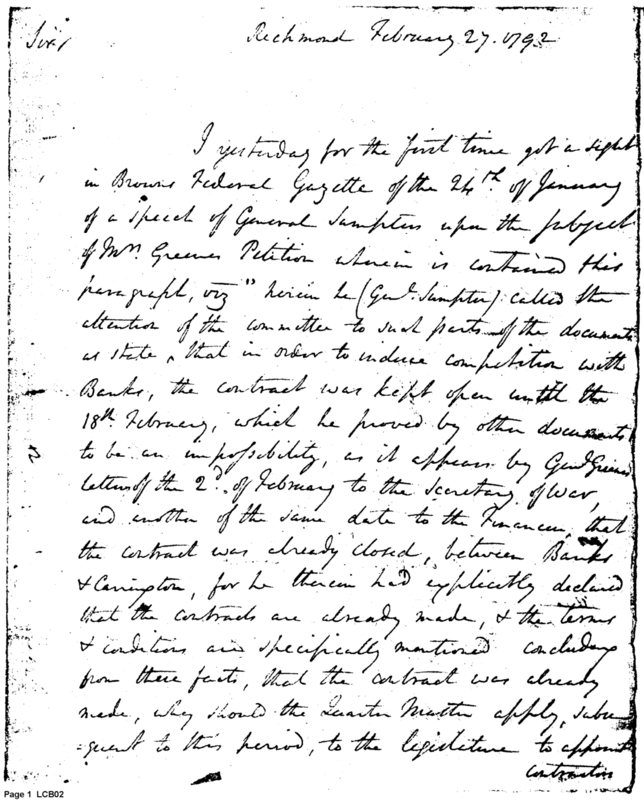 Sir/
Richmond February 27. 1792
I yesterday for the first time got a sight
in Browns Federal Gazette of the 24th of January
of a speech of General Sumpters upon the subject
of Mrs. Greenes Petition wherein is contained this
paragraph, viz "herein he (Genl. Sumpter) called the
attention of the committee to such parts of the documents
as state, that in order to induce competition with
Banks, the contract was kept open until the
18th February, which he proved by other documents
to be an impossibility, as it appears by Genl Greenes
letters of the 2d. of February to the Secretary of War,
and another of the same date to the Financier, that
the contract was already closed, between Banks
& Carrington, for he therein had explicitly declared
that the contracts are already made, & the terms
& conditions are specifically mentioned concluding
from these facts, that the contract was already
made, why should the Quarter Master apply, subse
=quent to this period, to the legislature to appoint
contractors
Page 1 LCB02